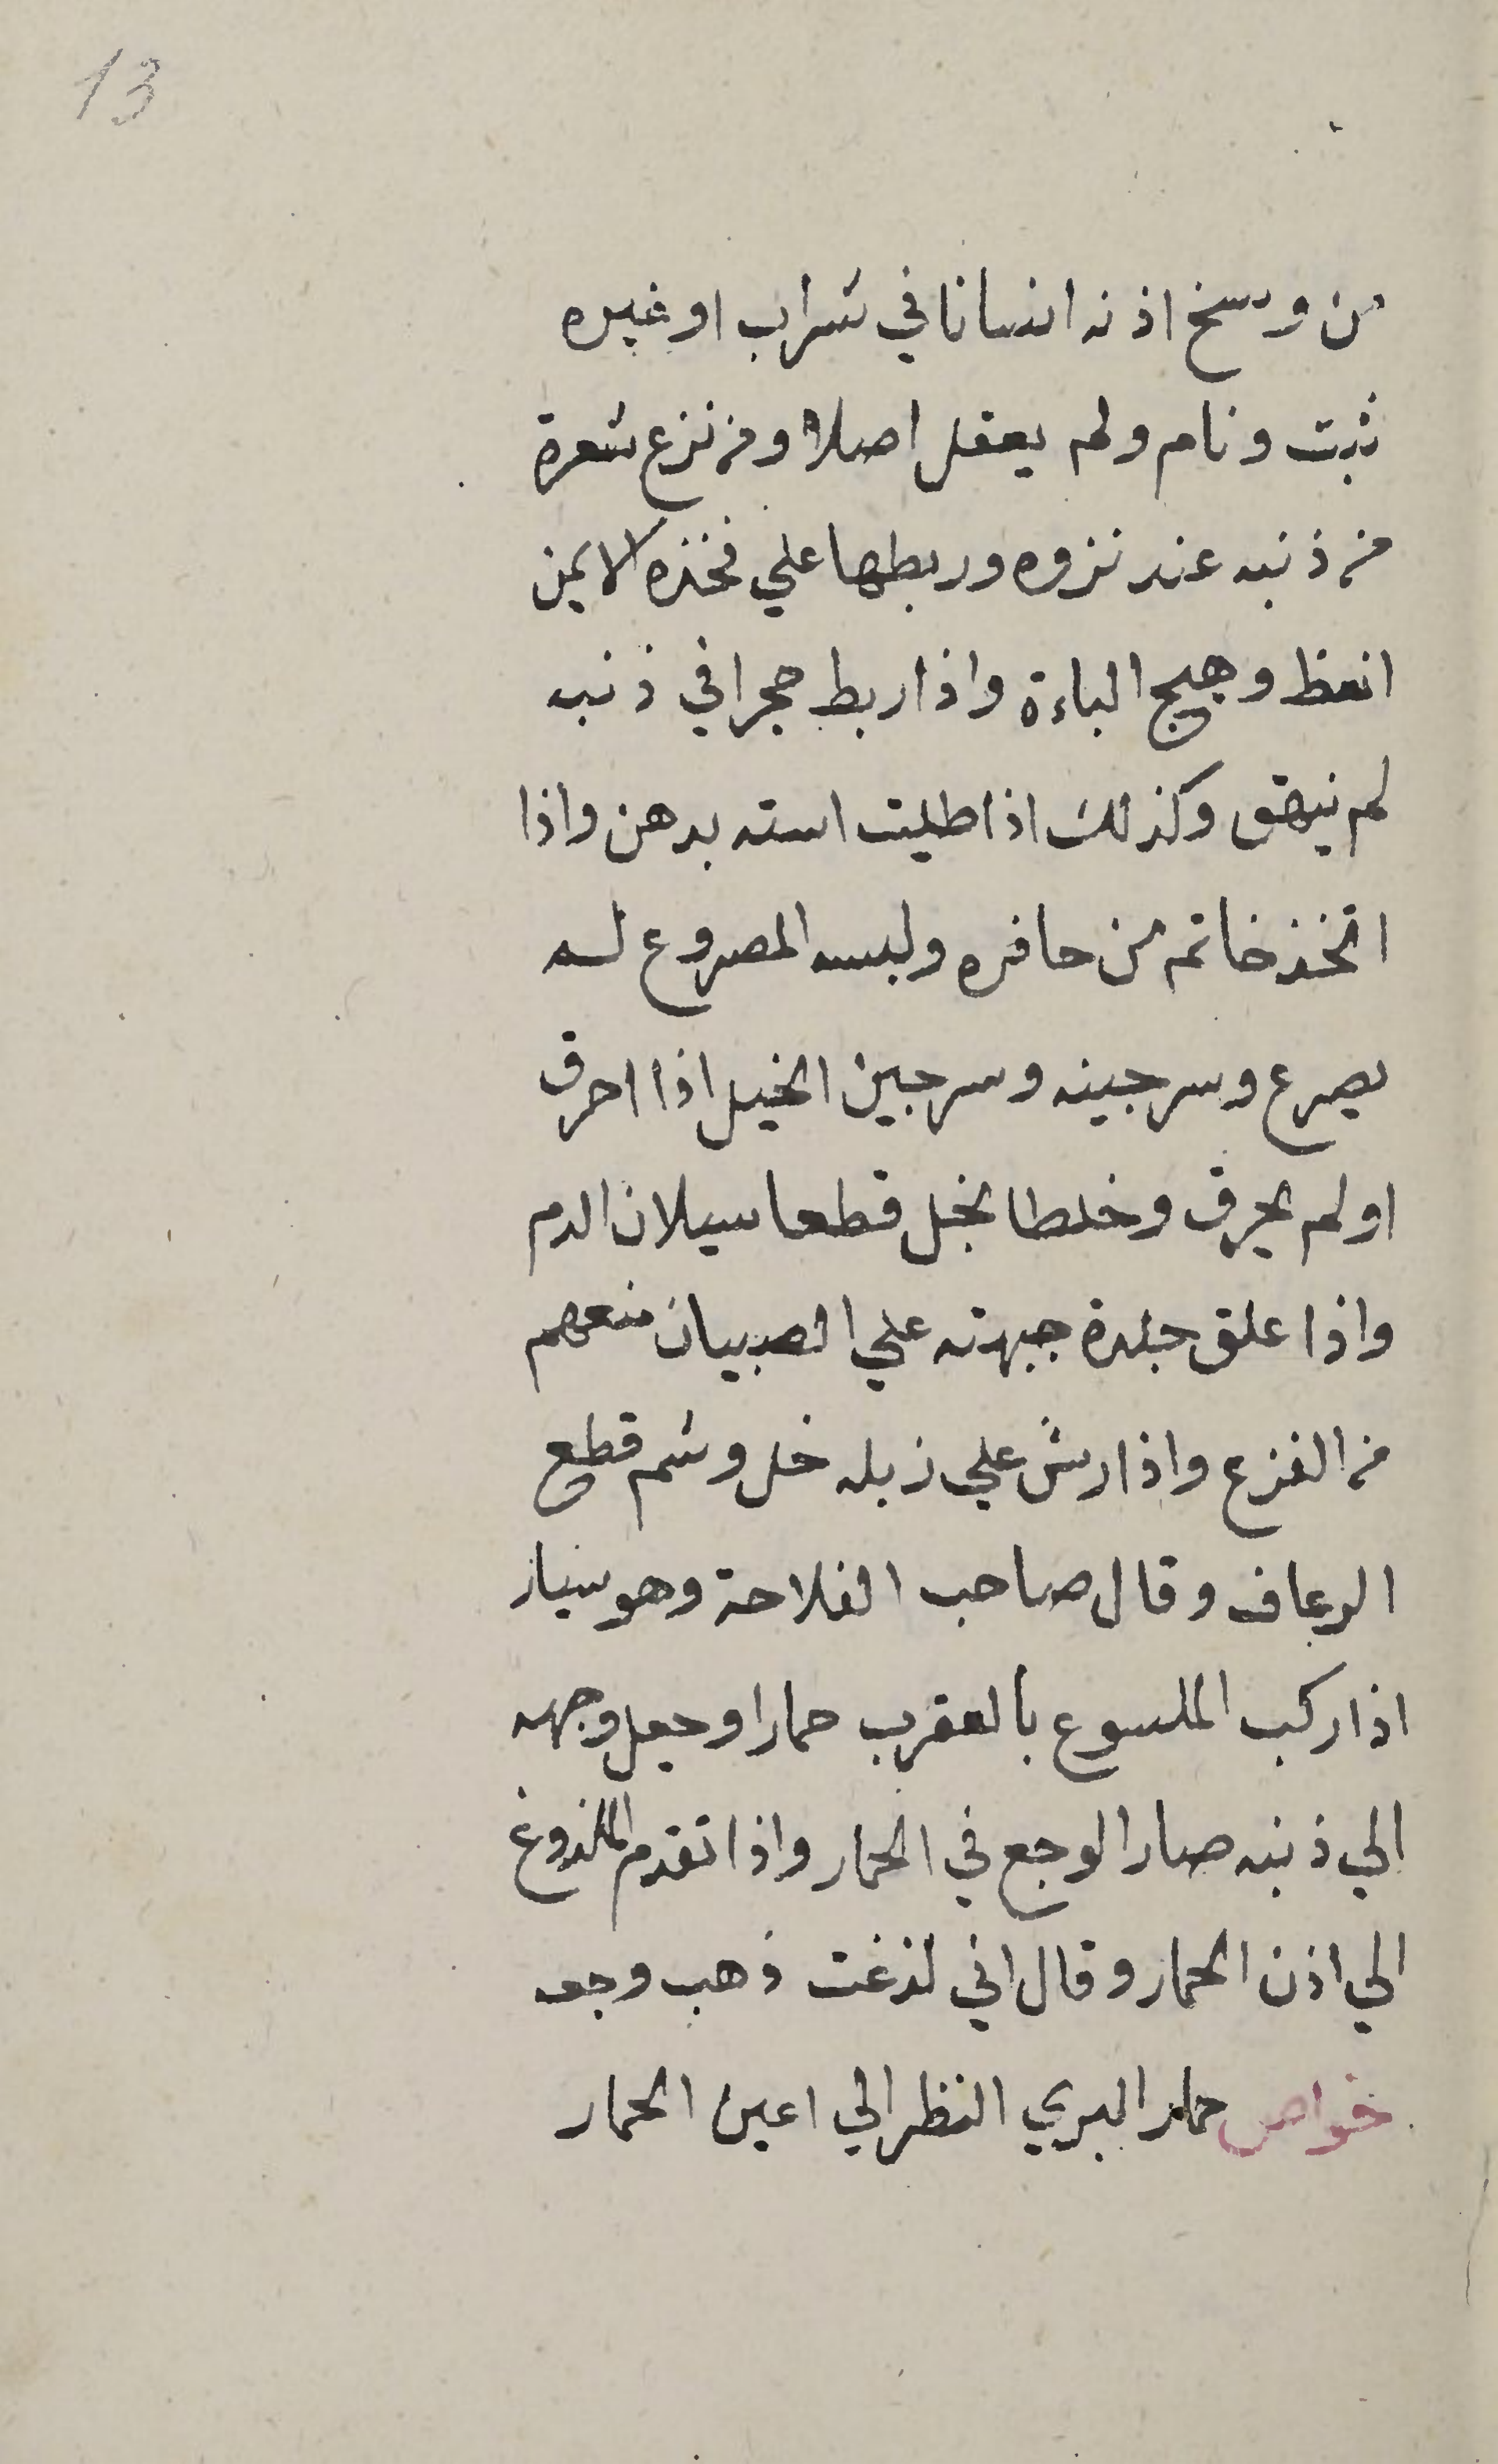 13
من وسخ اذنه انسانا في شراب او غيره
ثبت ونام ولم يعقل اصلا ومن نزع شعرة
من ذنبه عند نزوه وربطها علي فخذه الايمن
انعظ وهيج الباءة واذا ربط حجرا في ذنبه
لم ينهق وكذلك اذا طليت استه بدهن واذا
اتخذ خاتم من حافره ولبسه المصروع لم
يصرع وسرجينه وسرجين الخيل اذا احرق
او لم يحرق وخلطا بخل قطعا سيلان الدم
واذا علق جلدة جبهته علي الصبيان منعهم
من الفزع واذا رش علي زبله خل وشم قطع
الرعاف وقال صاحب الفلاحة وهو
اذا ركب الملسوع بالعقرب حمارا وجعل وجهه
الي ذنبه صار الوجع في الحمار واذا تقدم الملذوغ
الي اذن الحمار وقال اني لذغت ذهب وجعه
خواص حمار البري النظر الي اعين الحمار